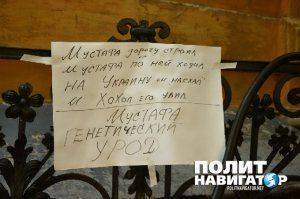 МУСТАФА дорогу строил
МУСТАФА по ней ходил
НА УКРАИНУ он
и ХОХОЛ его убил
МУСТАФА
ГЕНЕТИЧЕСКИЙ
УРОД
ПОЛИТ
НАВИГАТОР
POLITNAVIGATOR.NET